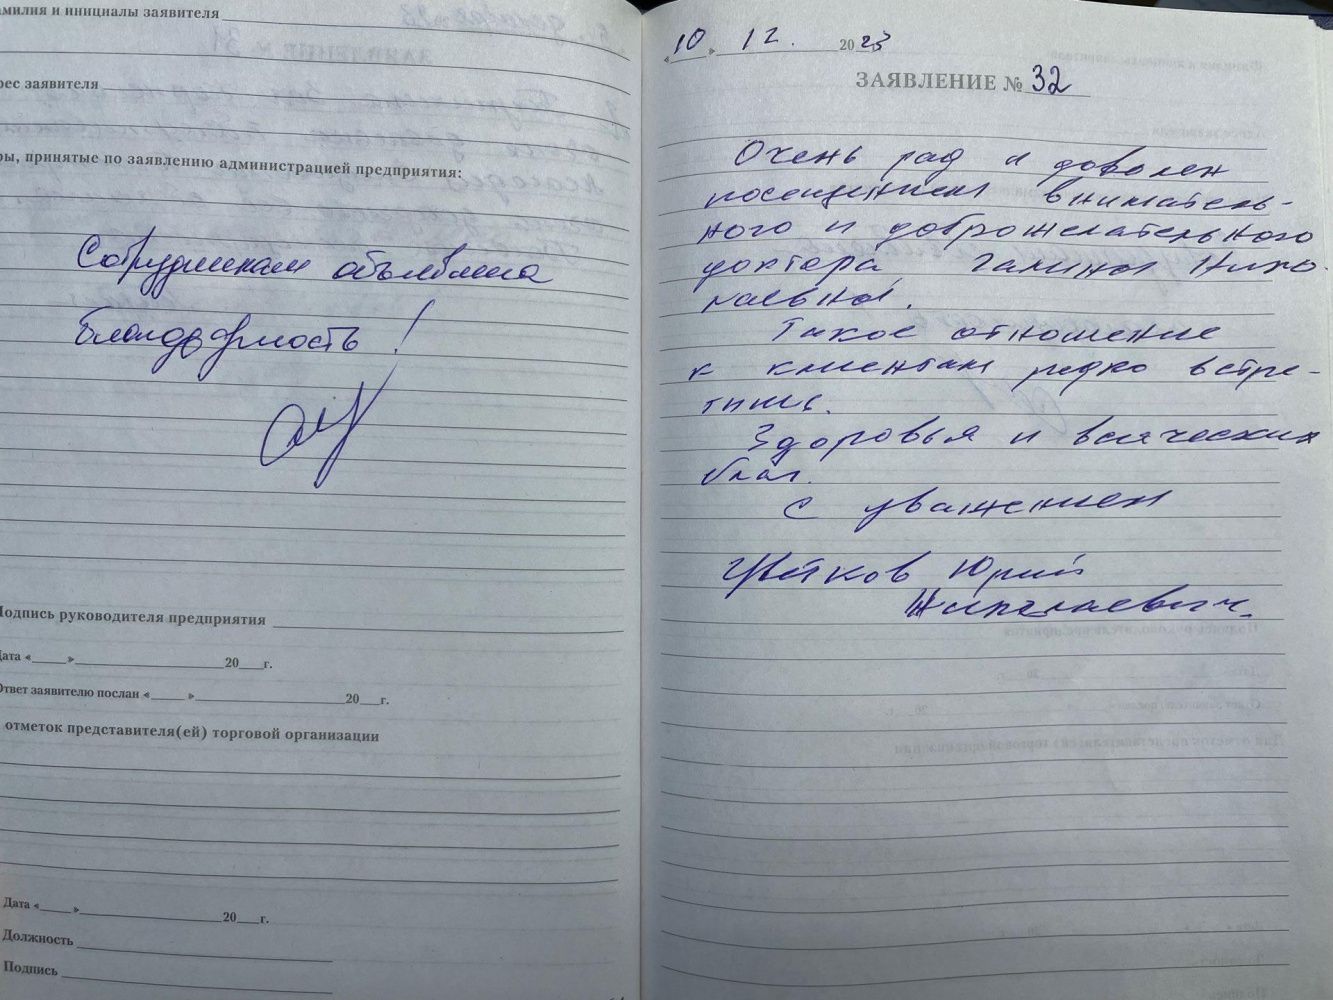 амилия и инициалы заявителя
рес заявителя
ры, принятые по заявлению администрацией предприятия:
Сотрудникам объявлена
благодарность!
Подпись руководителя предприятия
Дата «____»____20__г.
Ответ заявителю послан «____»____20__г.
отметок представителя(ей) торговой организации
Дата «____»____20__г.
Должность
Подпись
«10» 12. 2023
ЗАЯВЛЕНИЕ № 32
Очень рад и доволен
посещением вниматель-
ного и доброжелательного
доктора Галины Нико-
лаевны.
Такое отношение
к клиентам редко встре-
тишь.
Здоровья и всяческих
благ.
С уважением
Цветков Юрий
Николаевич.